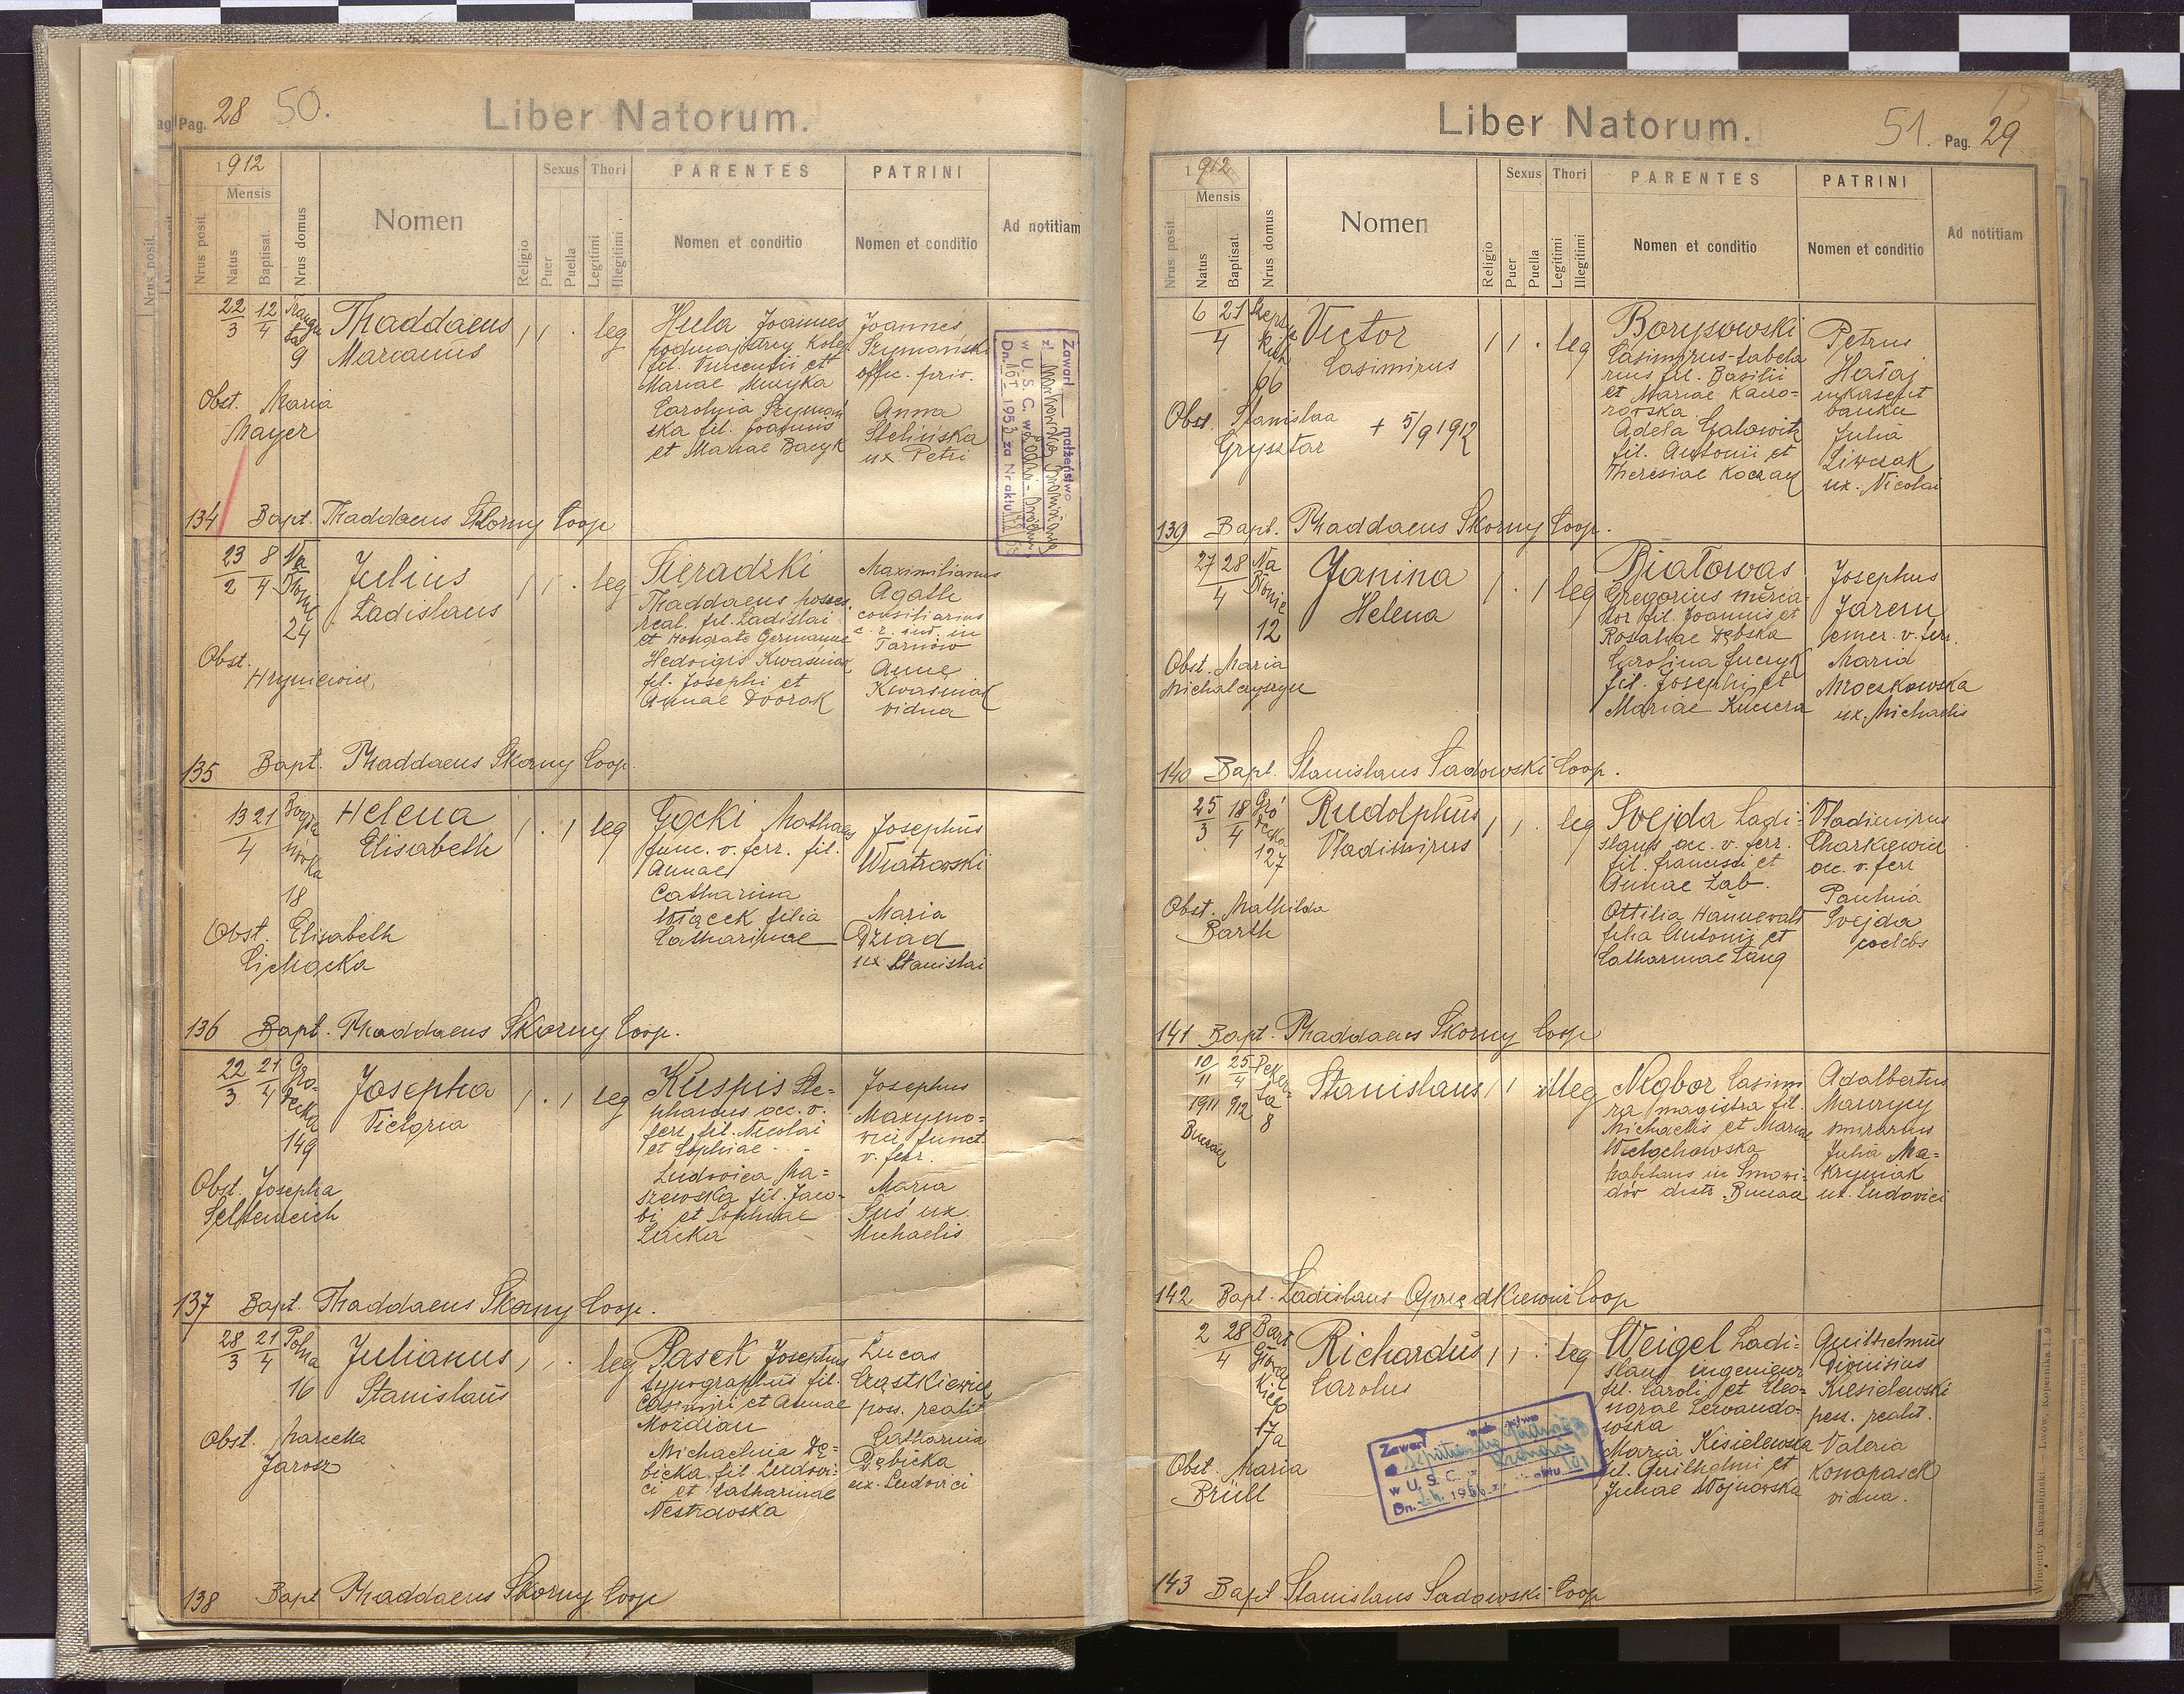 Pag. 28 50.
Liber Natorum.
1912
Mensis
Nrus posit.
Natus
Baptisat.
Nrus domus
Nomen
Religio
Sexus
Puer
Puella
Thori
Legitimi
Illegitimi
PARENTES
Nomen et conditio
PATRINI
Nomen et conditio
Ad notitiam
22/3 12/4
9
Thaddaeus
Marianus
1 1 . leg
Hula Joannes
podmajstrzy kolej
fil. Vincentii et
Mariae Muzyka
Carolina Szymań
ska fil. Joannis
et Mariae Baczyk
Joannes
Szymański
offic. priv.
Anna
Stelińska
ux. Petri
Obst. Maria
Mayer
Zawarł małżeństwo
w U.S.C. w
Dn. 195 za Nr aktu
134 Bapt. Thaddaeus Skorny Coop
23/2 8/4 Na
Błonie
24
Julius
Ladislaus
1 1 . leg
Sieradzki
Thaddaeus posses.
real. fil. Ladislai
et Honorate Germanne
Hedvigis Kwaśniak
fil. Josephi et
Annae Dvorak
Maximilianus
Agath
consiliarius
c. r. ind. in
Tarnów
Anna
Kwaśniak
vidua
Obst.
Hryniewicz
135 Bapt. Thaddaeus Skorny Coop.
13 21/4
18
Helena
Elisabeth
1 . 1 leg
Gącki Mathaeus
func. v. ferr. fil.
Annae
Catharina
Wiącek filia
Catharinae
Josephus
Wiatrowski
Maria
Dziad
ux Stanislai
Obst. Elisabeth
Cichocka
136 Bapt. Thaddaeus Skorny Coop.
22/3 21/4 Gro-
decka
149
Josepha
Victoria
1 . 1 leg
Kuspis Ste-
phanus occ. v.
ferr. fil. Nicolai
et Sophiae
Ludovica Ma=
szewska fil. Jaco-
bi et Sophiae
Lacka
Josephus
Maxymo=
wicz funct.
v. ferr.
Maria
Sus ux.
Michaelis
Obst. Josepha
Seltenreich
137 Bapt. Thaddaeus Skorny Coop.
28/3 21/4 Polna
16
Julianus
Stanislaus
1 1 . leg
Pasek Josephus
typographus fil.
Casimiri et Annae
Moździan
Michaelina Dę=
bicka fil. Ludovi-
ci et Catharinae
Nestrowska
Lucas
Cząstkiewicz
poss. realit
Catharina
Dębicka
ux. Ludovici
Obst. Marcella
Jarosz
138 Bapt Thaddaeus Skorny Coop
Liber Natorum.
51. Pag. 29
1912
Mensis
Nrus posit.
Natus
Baptisat.
Nrus domus
Nomen
Religio
Sexus
Puer
Puella
Thori
Legitimi
Illegitimi
PARENTES
Nomen et conditio
PATRINI
Nomen et conditio
Ad notitiam
6 21/4
66
Victor
Casimirus
1 1 . leg
Borysowski
Casimirus tabela
rius fil. Basilii
et Mariae Kawo-
rowska
Adela Galowitz
fil. Antonii et
Theresiae Koczan
Petrus
Hałaj
inkasent
banku
Julia
Liwczak
ux. Nicolai
Obst. Stanislaa
Grysztar
+ 5/9 1912
139 Bapt. Thaddaeus Skorny Coop.
27 28/4 Na
Błonie
12
Janina
Helena
1 . 1 leg
Białowas
Gregorius merca-
tor fil. Joannis et
Rosaliae Dębska
Carolina Juczyk
fil. Josephi et
Mariae Kucera
Josephus
Jarem
emer. v. ferr.
Maria
Mroczkowska
ux. Michaelis
Obst. Maria
Michalczyszyn
140 Bapt. Stanislaus Sadowski Coop.
25/3 18/4 Gró
decka
127
Rudolphus
Vladimirus
1 1 . leg
Svejda Ladi-
slaus occ. v. ferr.
fil. Francisci et
Annae Żab.
Ottilia Hannewalt
filia Antonii et
Catharinae Lang
Vladimirus
Charkiewicz
occ. v. ferr
Paulina
Svejda
coelebs
Obst. Mathilda
Barth
141 Bapt. Thaddaeus Skorny Coop
10/11 25/4
1911 912
8
Stanislaus
1 1 illeg
Negbor Casimi
ra magistra fil.
Michaelis et Mariae
Wichochowska
habitans in Smowi-
dów distr. Buczacz
Adalbertus
Maurycy
murarius
Julia Ma=
kryniak
ux. Ludovici
142 Bapt. Ladislaus Oprządkiewicz Coop
2 28/4 Bart
Głowac
kiego
17a
Richardus
Carolus
1 1 . leg
Weigel Ladi-
slaus ingenieur
fil. Caroli et Eleo-
norae Lewando-
wska
Maria Kisielewska
fil. Guilhelmi et
Juliae Wojnowska
Guilhelmus
Dionisius
Kisielewski
poss. realit.
Valeria
Konopasek
vidua.
Obst. Maria
Brüll
Zawarł
w U.S.C. w
143 Bapt Stanislaus Sadowski Coop